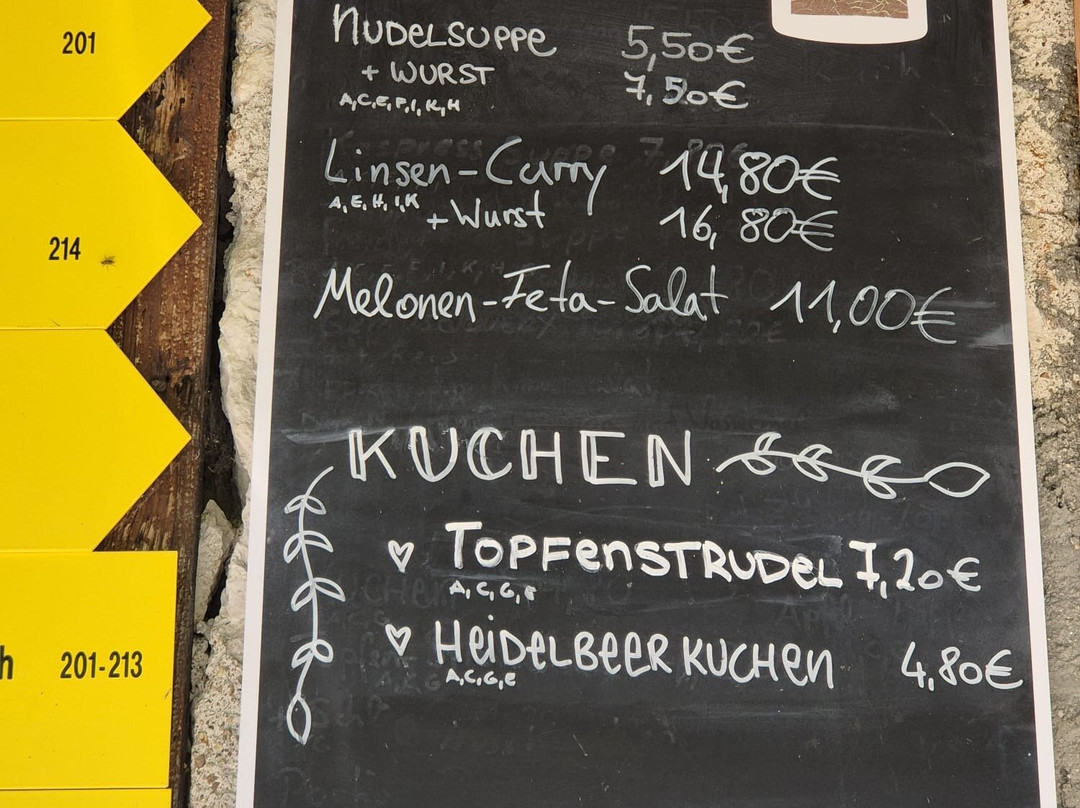 201
214
h 201-213
NUDELSUPPE 5,50€
+ WURST 7,50€
A,C,E,F,I,K,H
Linsen-Curry 14,80€
A,E,H,I,K +Wurst 16,80€
Melonen-Feta-Salat 11,00€
KUCHEN
TOPFENSTRUDEL 7,20€
A,C,G,E
HEIDELBEERKUCHEN 4,80€
A,C,G,E